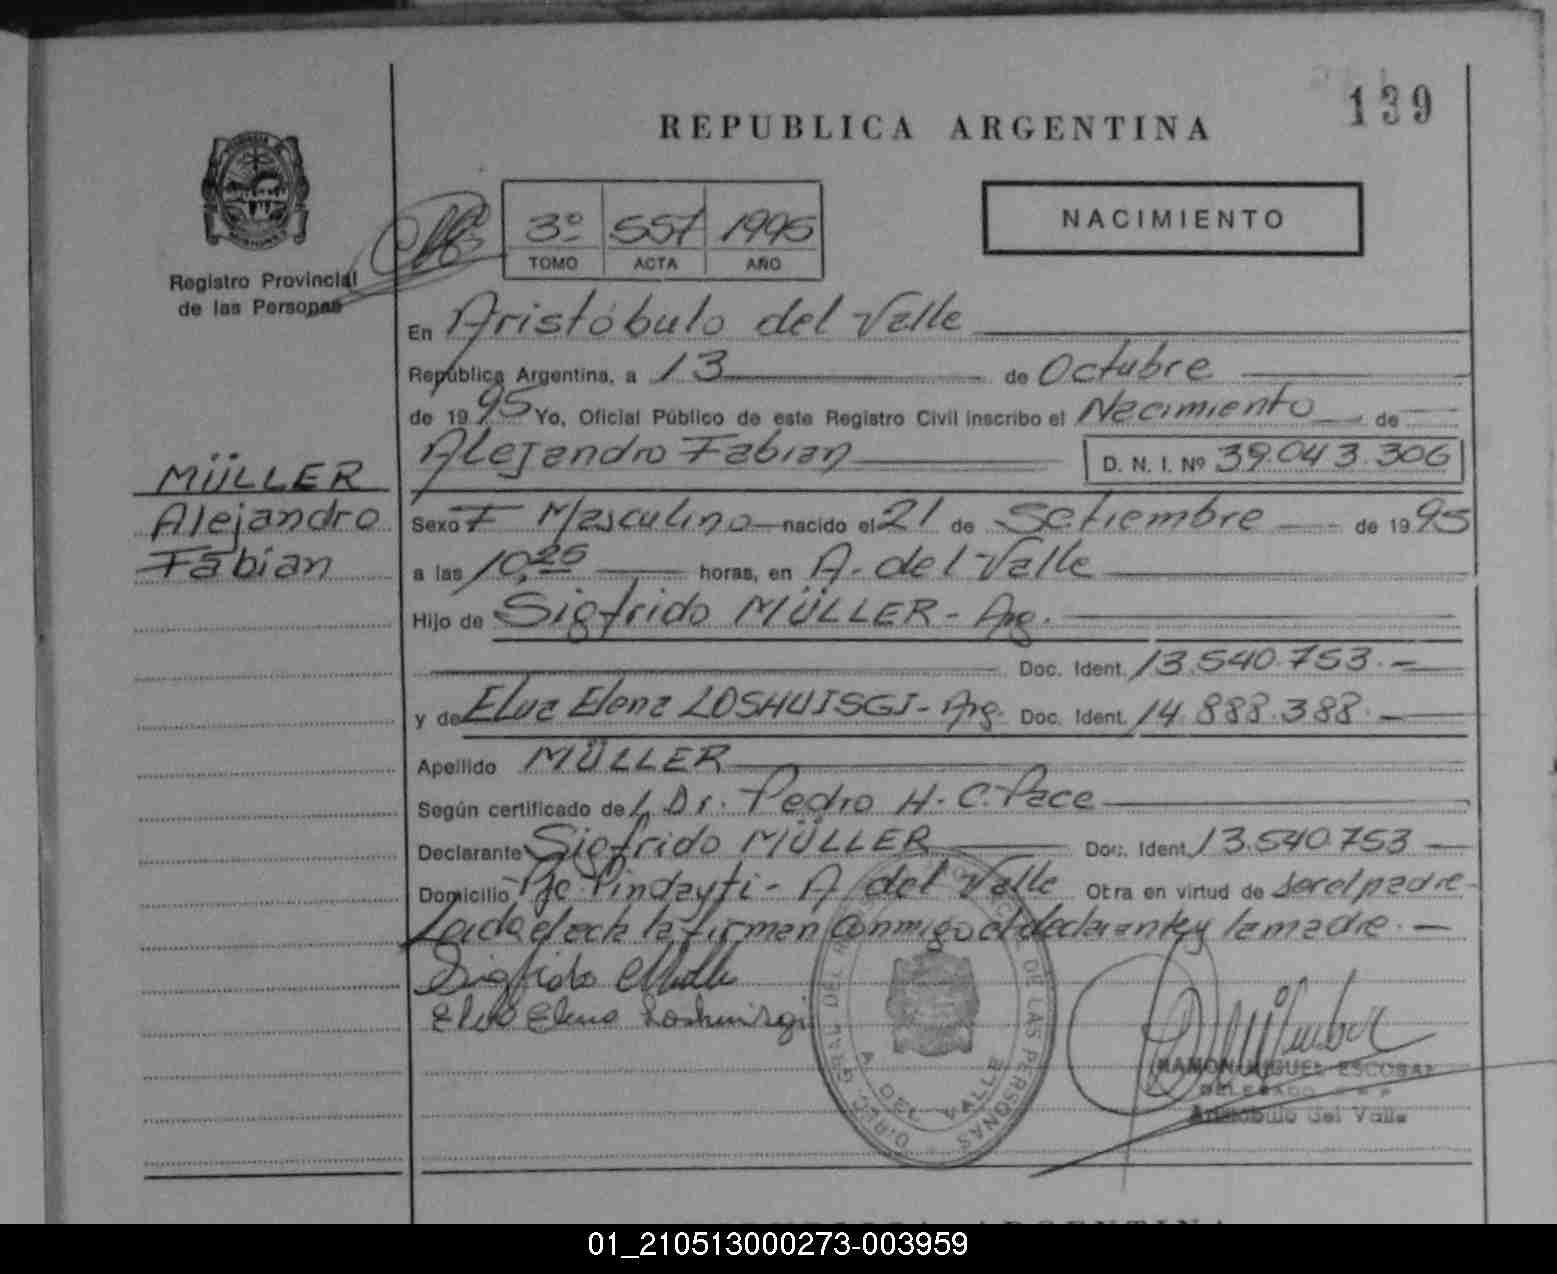 139
REPUBLICA ARGENTINA
3º 557 1995
TOMO ACTA AÑO
NACIMIENTO
Registro Provincial
de las Personas
En Aristóbulo del Valle
República Argentina, a 13 de Octubre
de 1995 Yo, Oficial Público de este Registro Civil inscribo el Nacimiento de
Alejandro Fabian D. N. I. Nº 39.043.306
MÜLLER
Alejandro
Fabian
Sexo Masculino nacido el 21 de Setiembre de 1995
a las 10,25 horas, en A. del Valle
Hijo de Sigfrido MÜLLER - Arg.
Doc. Ident. 13.540.753.-
y de Elva Elena LOSHUISGI - Arg. Doc. Ident. 14.888.388.-
Apellido MÜLLER
Según certificado del Dr. Pedro H. C. Pace
Declarante Sigfrido MÜLLER Doc. Ident. 13.540.753
Domicilio Pje. Pindayti - A. del Valle Otra en virtud de ser el padre-
Leida el acta la firman conmigo el declarante y la madre.-
Sigfrido Müller
Elva Elena Loshuisgi
DIREC. GRAL. DEL REGISTRO PROVINCIAL DE LAS PERSONAS
A. DEL VALLE
RAMON MIGUEL ESCOBAR
DELEGADO
Aristóbulo del Valle
REPUBLICA ARGENTINA
01_210513000273-003959